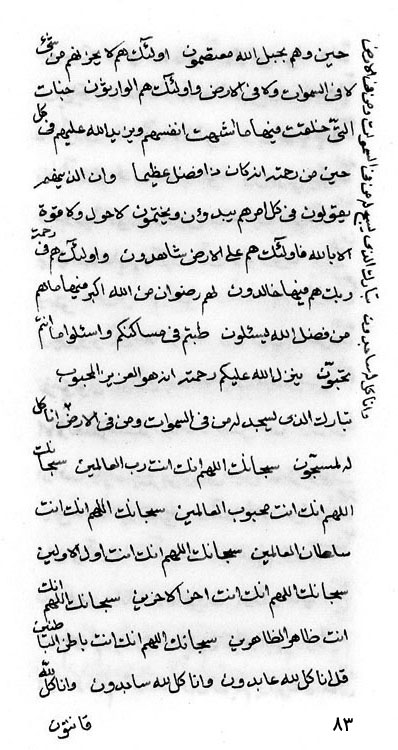 حين وهم بحبل الله معتصمون اولئك هم لا يحزنهم من شئ
لا فى السموات ولا فى الارض واولئك هم الوارثون جنات
التى خلقت فيها ما اشتهت انفسهم ويزيد الله عليهم فى كل
حين من رحمته انه كان ذا فضل عظيما وان
يقولون فى كل امرهم يبدؤن ويختمون لا حول ولا قوة
الا بالله فاولئك هم على الارض شاهدون واولئك هم فى رحمت
ربك هم فيها خالدون لهم رضوان من الله اكبر فيها ما هم
من فضل الله يسئلون طبتم فى مساكنكم واسئلوا ما انتم
تحبون ينزل الله عليكم رحمته انه هو العزيز المحبوب
تبارك الذى يسجد له من فى السموات ومن فى الارض انا كل
له لمسبحون سبحانك اللهم انك انت رب العالمين سبحانك
اللهم انك انت محبوب العالمين سبحانك اللهم انك انت
سلطان العالمين سبحانك اللهم انك انت اول الاولين
سبحانك اللهم انك انت اخر الاخرين سبحانك اللهم انك
انت ظاهر الظاهرين سبحانك اللهم انك انت باطن الباطنين
قل انا كل لله عابدون وانا كل لله ساجدون وانا كل لله
قانتون
٨٣
تبارك الذى يسبح له من فى السموات ومن فى الارض
وانا كل له ساجدون